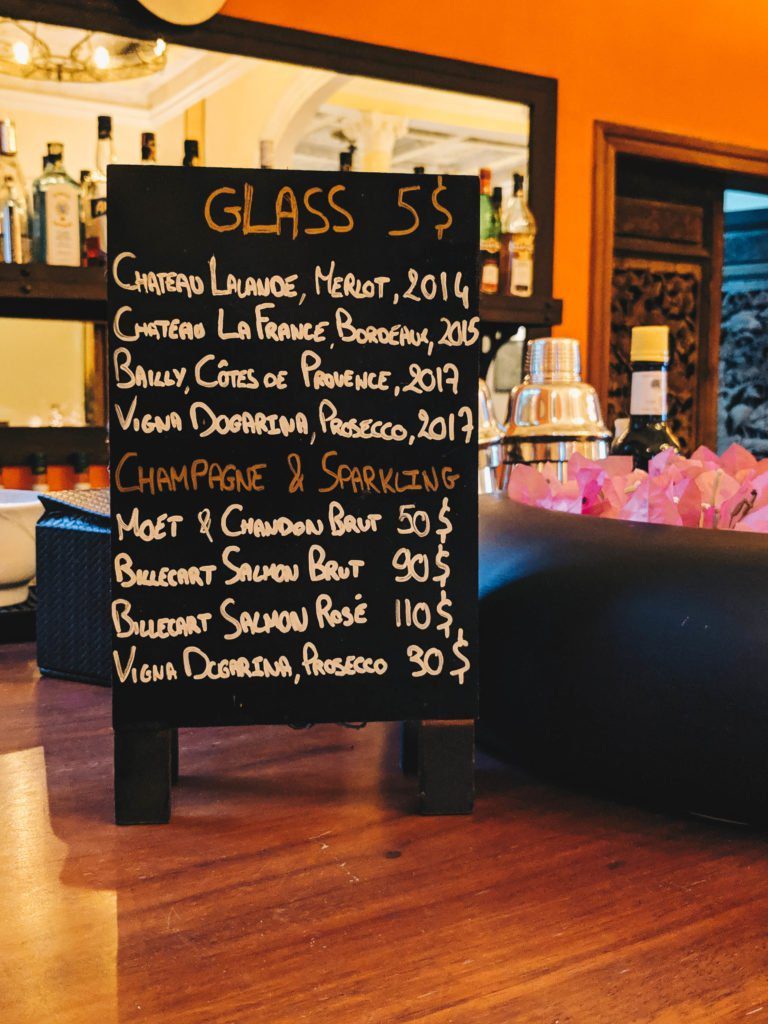 GLASS 5$
CHATEAU LALANDE, MERLOT, 2014
CHATEAU LA FRANCE, BORDEAUX, 2015
BAILLY, CÔTES DE PROVENCE, 2017
VIGNA DOGARINA, PROSECCO, 2017
CHAMPAGNE & SPARKLING
MOËT & CHANDON BRUT 50$
BILLECART SALMON BRUT 90$
BILLECART SALMON ROSÉ 110$
VIGNA DOGARINA, PROSECCO 30$